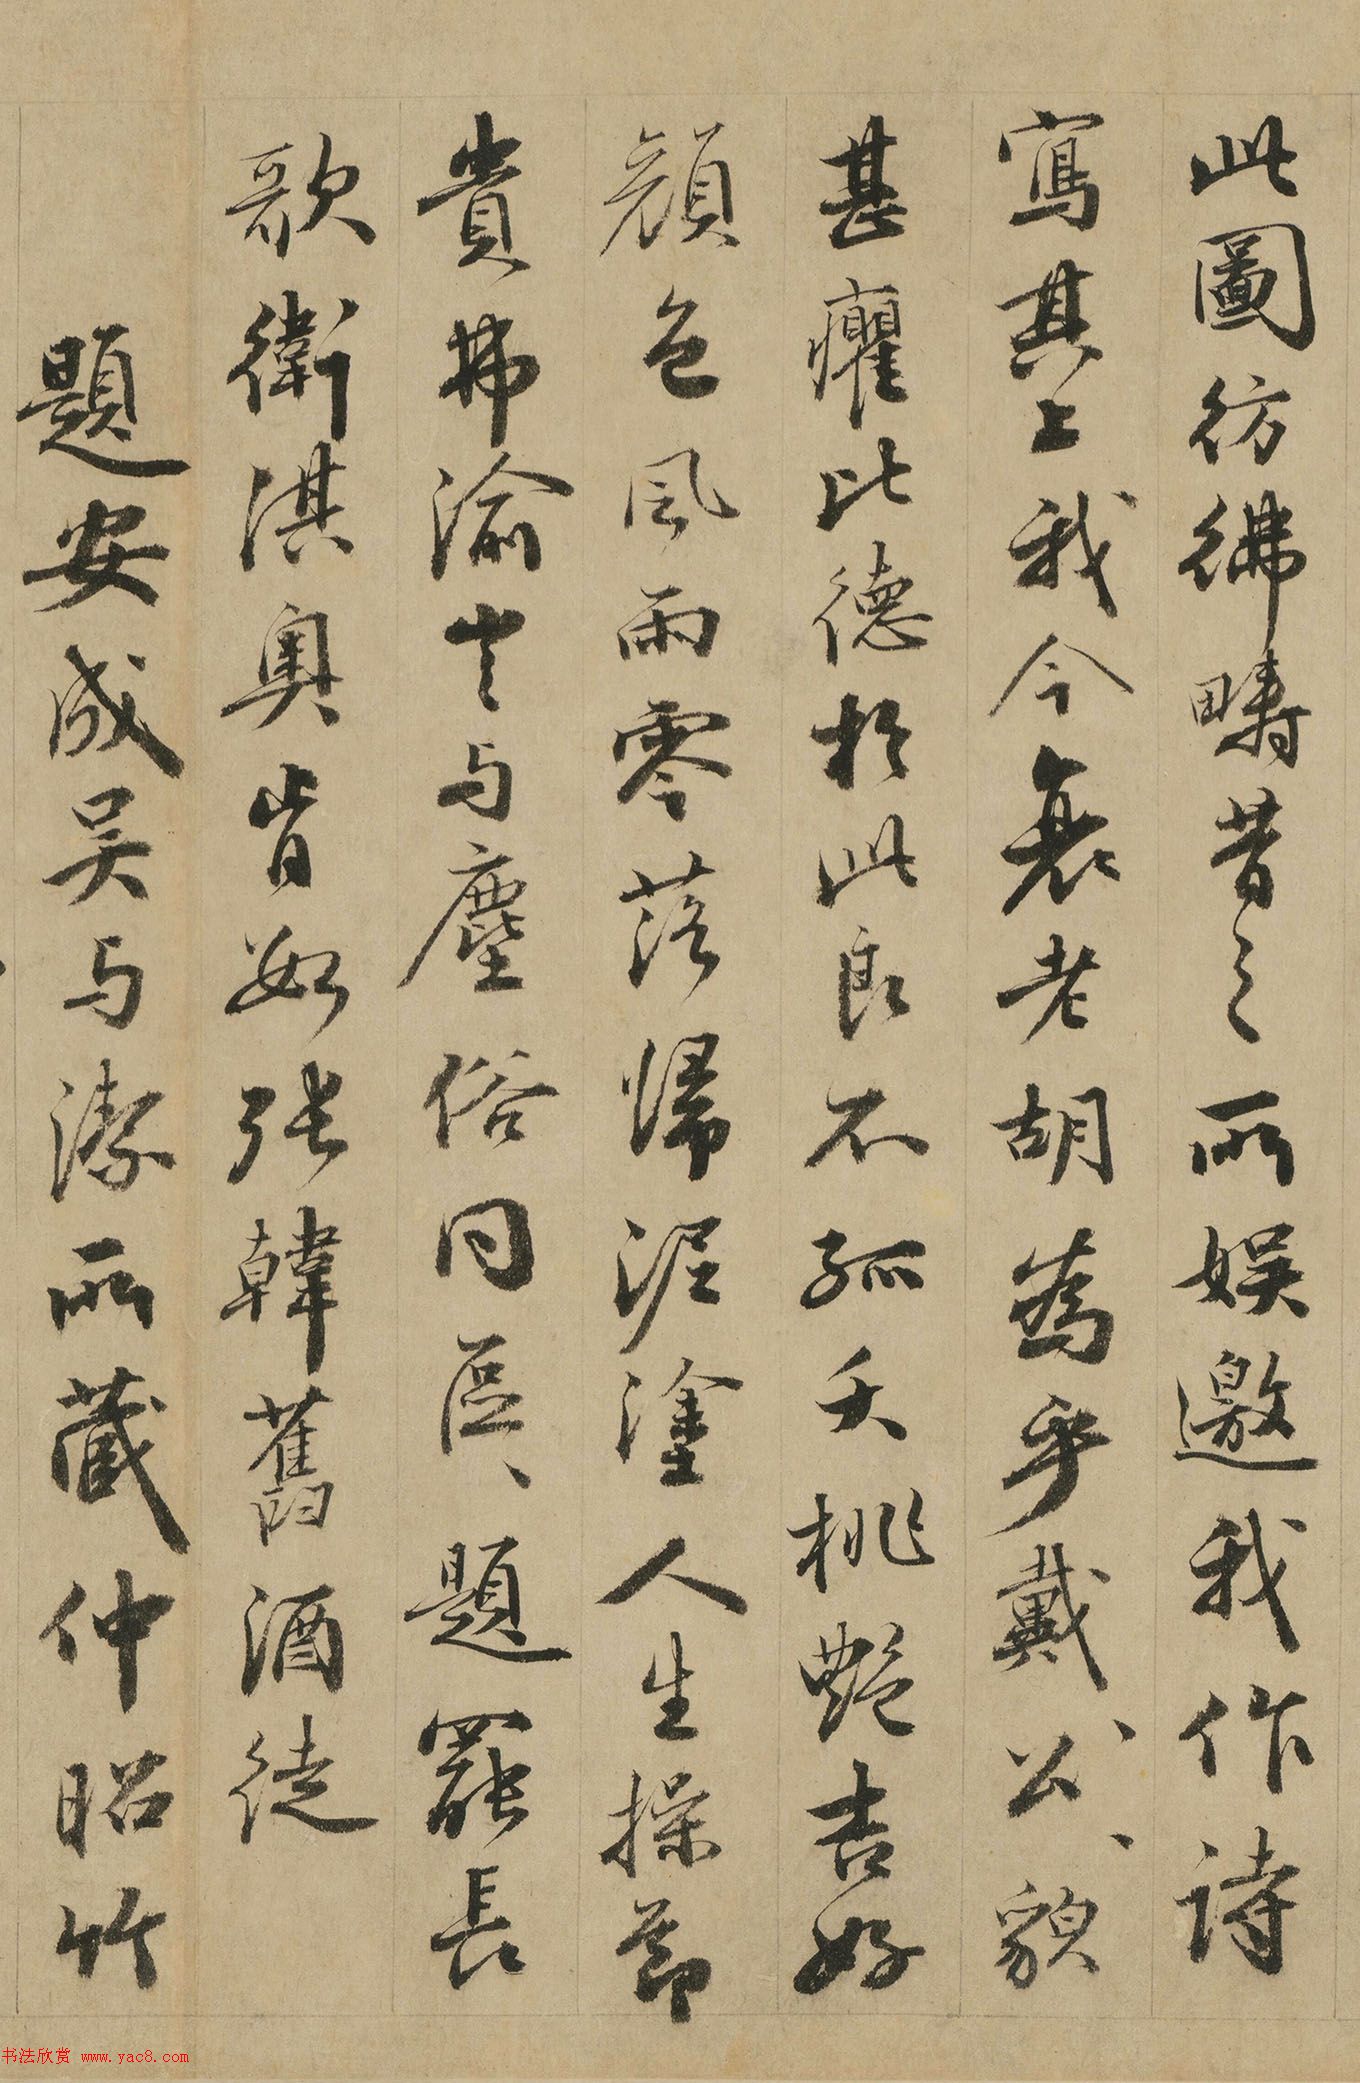 此圖彷彿疇昔之所娛邀我作詩
寫其上我今衰老胡為乎戴公公貌
甚癯比德於此良不孤夭桃艷杏好
顏色風雨零落歸泥塗人生操節
貴弗渝安與塵俗同區區題罷長
歌衛淇奧肯數張韓舊酒徒
題安成吳与潔所藏仲昭竹
书法欣赏 www.yac8.com